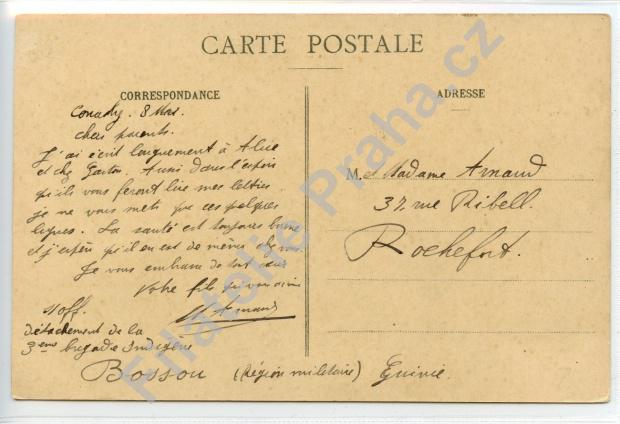 CARTE POSTALE
CORRESPONDANCE
Conakry. 8 Mars.
chers parents.
J'ai écrit longuement à Alice
et chez Gaston. Aussi dans l'espoir
qu'ils vous feront lire mes lettres
je ne vous mets que ces quelques
lignes. La santé est toujours bonne
et j'espère qu'il en est de même chez vous
Je vous embrasse de tout cœur
Votre fils qui vous aime
Armand
S/off.
Détachement de la
3eme brigade Indigène
Bossou (Région militaire) Guinée.
ADRESSE
M. et Madame Arnaud
37, rue Ribell.
Rochefort.
Filatelie Praha.cz